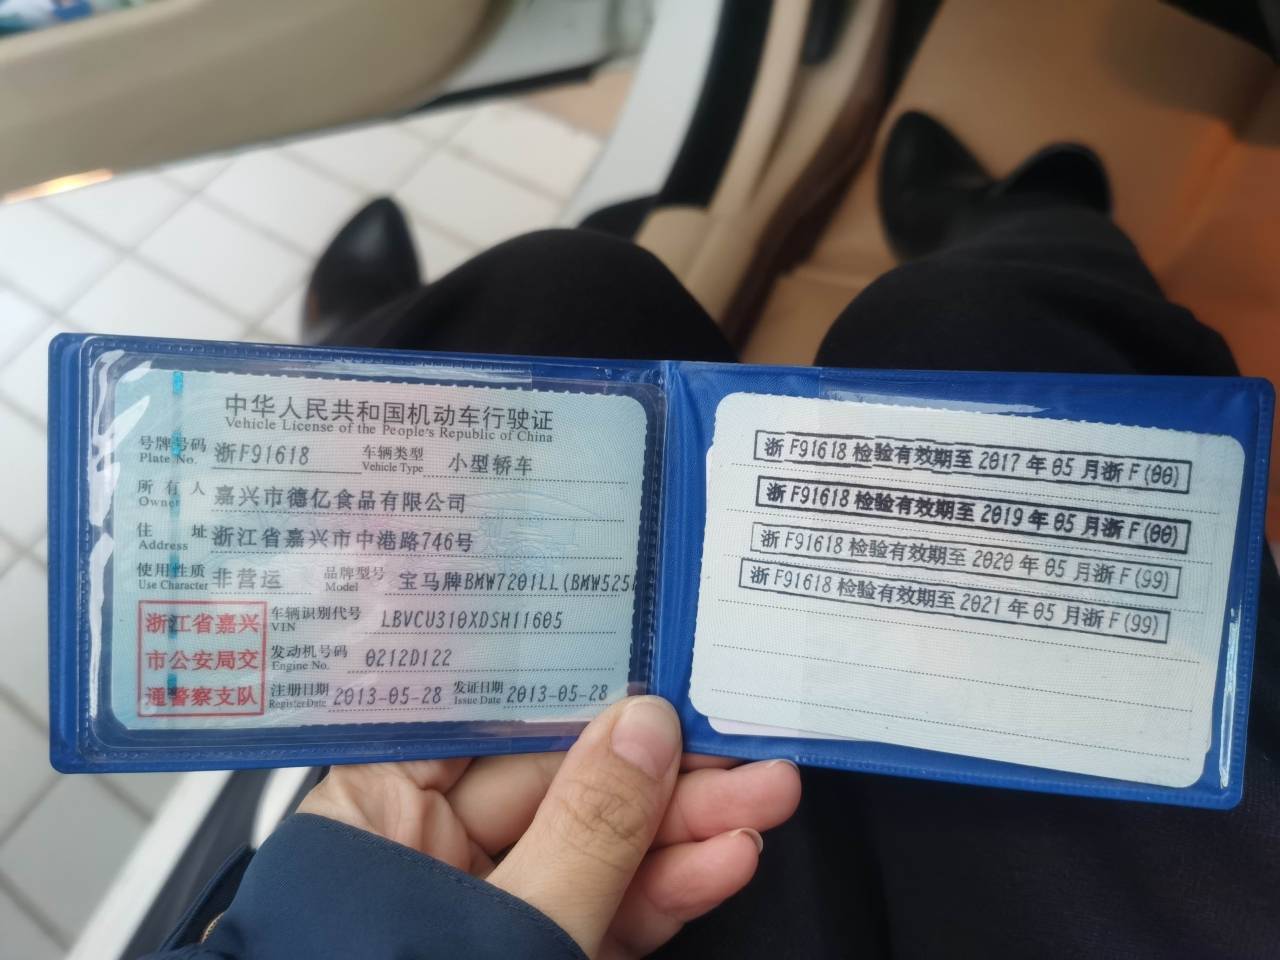 中华人民共和国机动车行驶证
Vehicle License of the People's Republic of China
号牌号码 浙F91618 车辆类型 小型轿车
Plate No. Vehicle Type
所有人 嘉兴市德亿食品有限公司
Owner
住址 浙江省嘉兴市中港路746号
Address
使用性质 非营运 品牌型号 宝马牌BMW7201LL(BMW525
Use Character Model
浙江省嘉兴
市公安局交
通警察支队
车辆识别代号 LBVCU310XDSH11605
VIN
发动机号码 0212D122
Engine No.
注册日期 2013-05-28 发证日期 2013-05-28
Register Date Issue Date
浙F91618检验有效期至2017年05月浙F(00)
浙F91618检验有效期至2019年05月浙F(00)
浙F91618检验有效期至2020年05月浙F(99)
浙F91618检验有效期至2021年05月浙F(99)